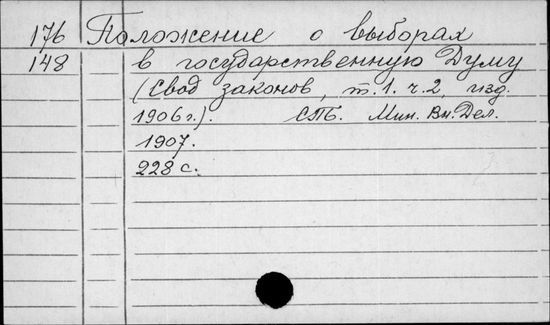 176 Положение о выборах
148 в государственную Думу
(Свод законов, т.1. ч.2, изд.
1906 г.). СПБ. Мин. Вн. Дел.
1907.
228 с.